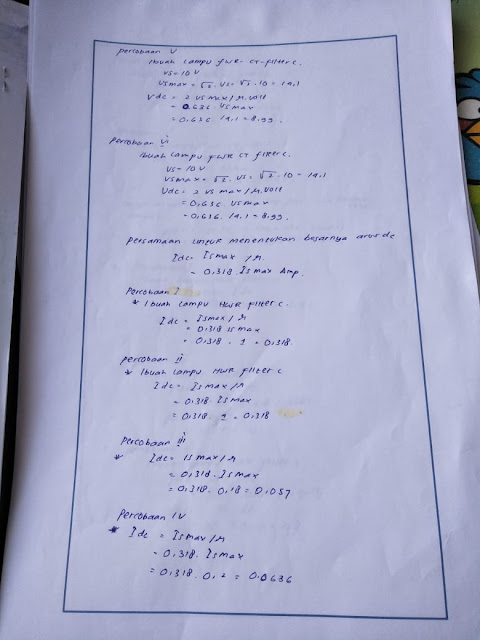 percobaan V
1buah Lampu FWR - CT - Filter C.
VS = 10 V
VS max = √2 . VS = √2 . 10 = 14,1
Vdc = 2 VS max / π. Volt
= 0,636 . VS max
= 0,636 . 14,1 = 8,99.
percobaan VI
1buah Lampu FWR CT Filter C.
VS = 10 V
VS max = √2 . VS = √2 . 10 = 14,1
Vdc = 2 VS max / π. Volt
= 0,636 . VS max
= 0,636 . 14,1 = 8,99.
Persamaan untuk menentukan besarnya arus dc
Idc = IS max / π.
= 0,318 . IS max Amp.
Percobaan I
* 1buah Lampu HWR Filter C.
Idc = IS max / π
= 0,318 IS max
= 0,318 . 1 = 0,318.
percobaan II
* 1buah Lampu HWR Filter C
Idc = IS max / π
= 0,318 . IS max
= 0,318 . 1 = 0,318
percobaan III
* Idc = IS max / π
= 0,318 . IS max
= 0,318 . 0,18 = 0,057
percobaan IV
* Idc = IS max / π
= 0,318 . IS max
= 0,318 . 0,2 = 0,0636